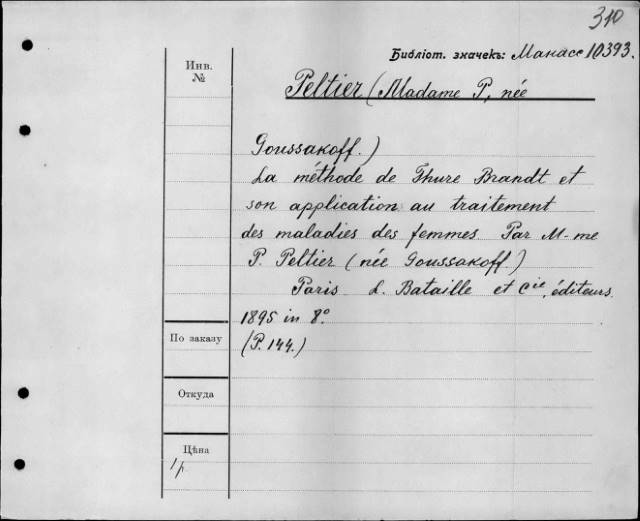 310
Библіот. значекъ: Манасс 10393.
Инв.
№
Peltier (Madame P, née
Goussakoff.)
La méthode de Thure Brandt et
son application au traitement
des maladies des femmes Par M-me
P. Peltier (née Goussakoff.)
Paris L. Bataille et Cie, éditeurs.
1895 in 8°.
По заказу
(P. 144.)
Откуда
Цѣна
1 р.